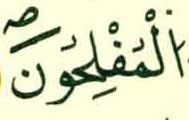 اَ۬لْمُفْلِحُونَۖ